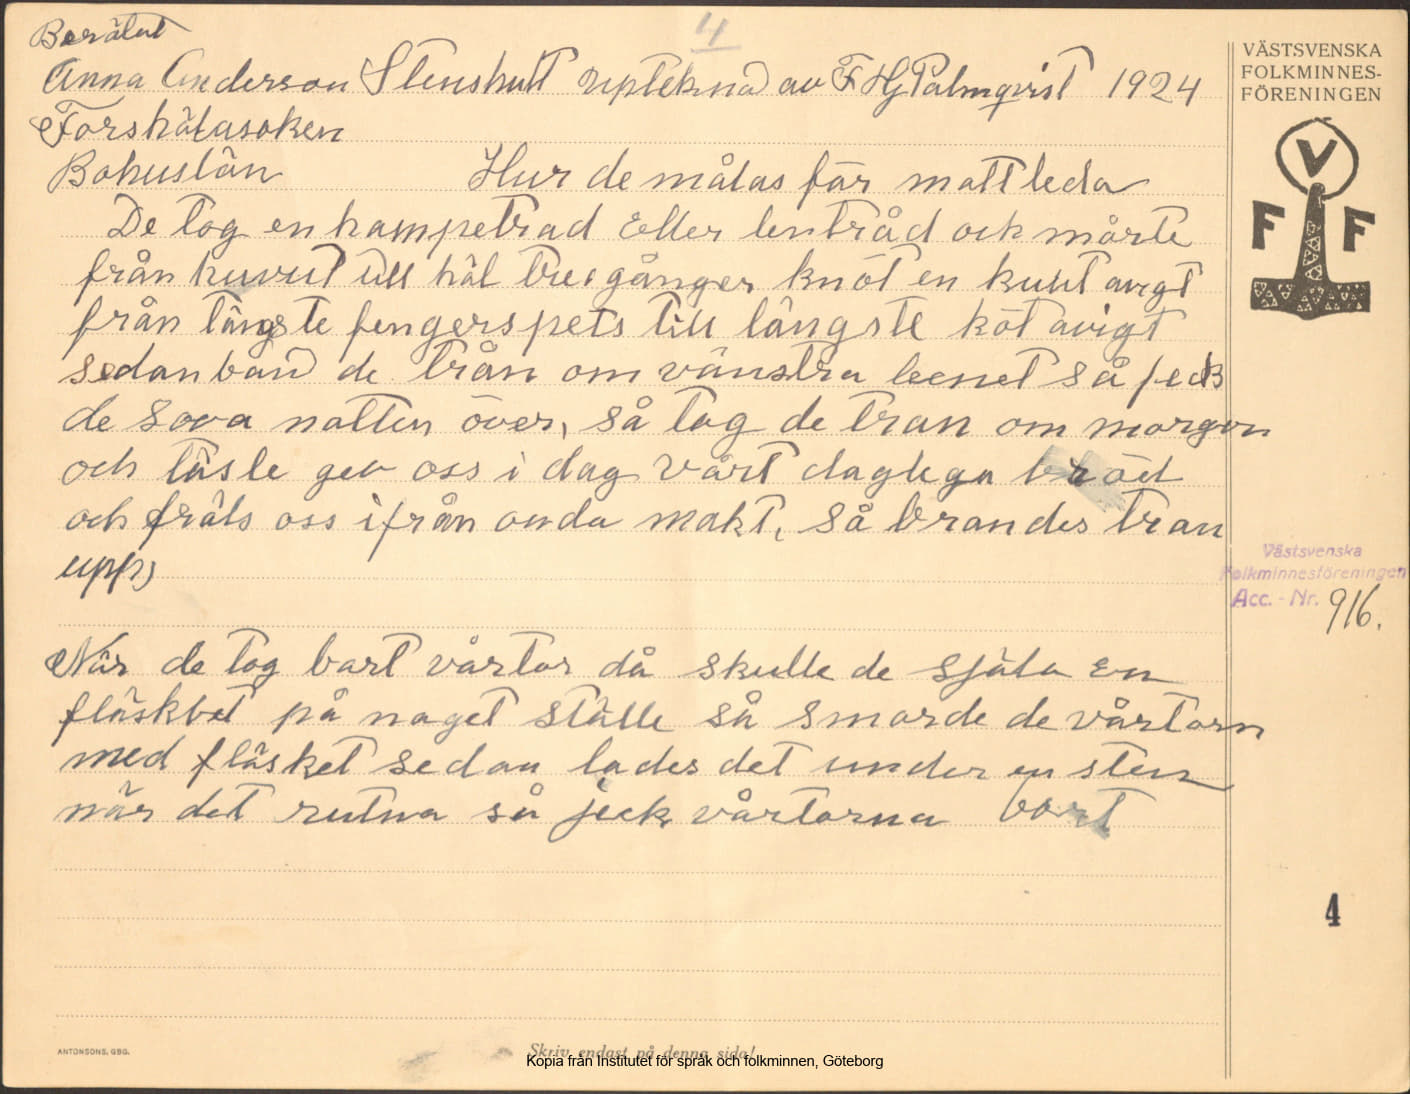 4
Berätat
Anna Anderson Stenshult uptekna av F HJ Palmqvist 1924
Forshälasoken
Bohuslän Hur de mälas får mattleda
De tog en hampetrad Eller lentråd och mårte
från huvut till häl tree gånger knöt en knut avigt
från längste fengerspets till längste köt avigt
sedan band de trån om vänstra beenet så feck
de sova natten över, så tog de tran om morgon
och läsle gev oss i dag vårt daglega bröd
och fräls oss ifrån onda makt, så brandes tran
upp,
När de tog bart vårtor då skulle de själa en
fläskbet på naget ställe så smorde de vårtorn
med fläsket sedan lades det under en sten
när det rutna så jeck vårtorna bort
VÄSTSVENSKA
FOLKMINNES-
FÖRENINGEN
V
F F
Västsvenska
Folkminnesföreningen
Acc. - Nr. 916.
4
ANTONSONS, GBG.
Skriv endast på denna sida!
Kopia från Institutet för språk och folkminnen, Göteborg